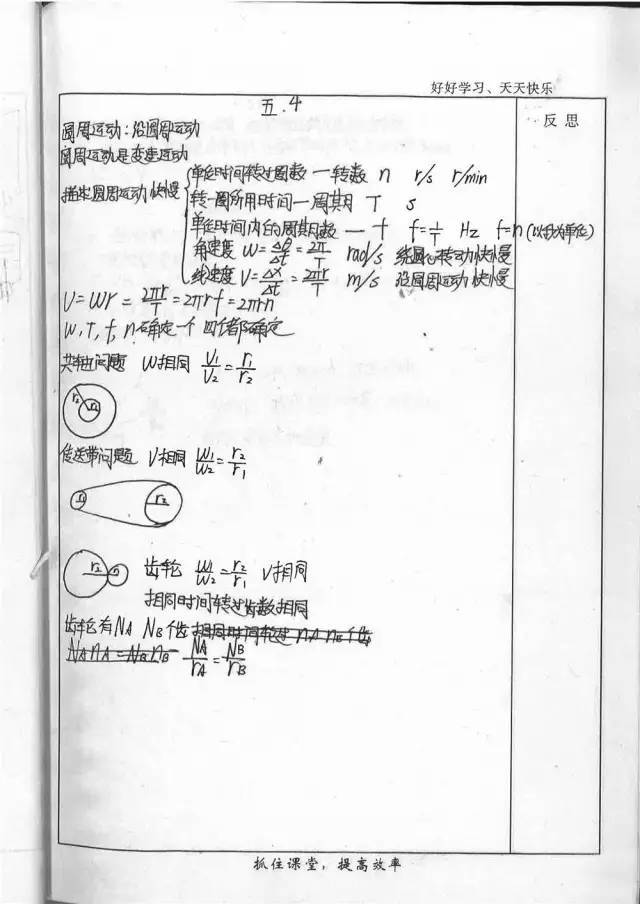 好好学习、天天快乐
五.4
反思
圆周运动:沿圆周运动
圆周运动是变速运动
描述圆周运动快慢
单位时间转过圈数—转数 n r/s r/min
转一圈所用时间—周期 T s
单位时间内的周期数— f f=1/T Hz f=n(以秒为单位)
角速度 W=Δθ/Δt=2π/T rad/s 绕圆心转动快慢
线速度 V=Δx/Δt=2πr/T m/s 沿圆周运动快慢
V=Wr=2πr/T=2πrf=2πrn
W,T,f,n确定一个 四个都确定
共轴问题 W相同 V₁/V₂=r₁/r₂
r₂ r₁
传送带问题 V相同 W₁/W₂=r₂/r₁
r₁ r₂
r₂ r₁ 齿轮 W₁/W₂=r₂/r₁ V相同
相同时间转过齿数相同
齿轮有NA NB个齿 相同时间转过 nA nB个齿
NAnA=NBnB NA/rA=NB/rB
抓住课堂,提高效率